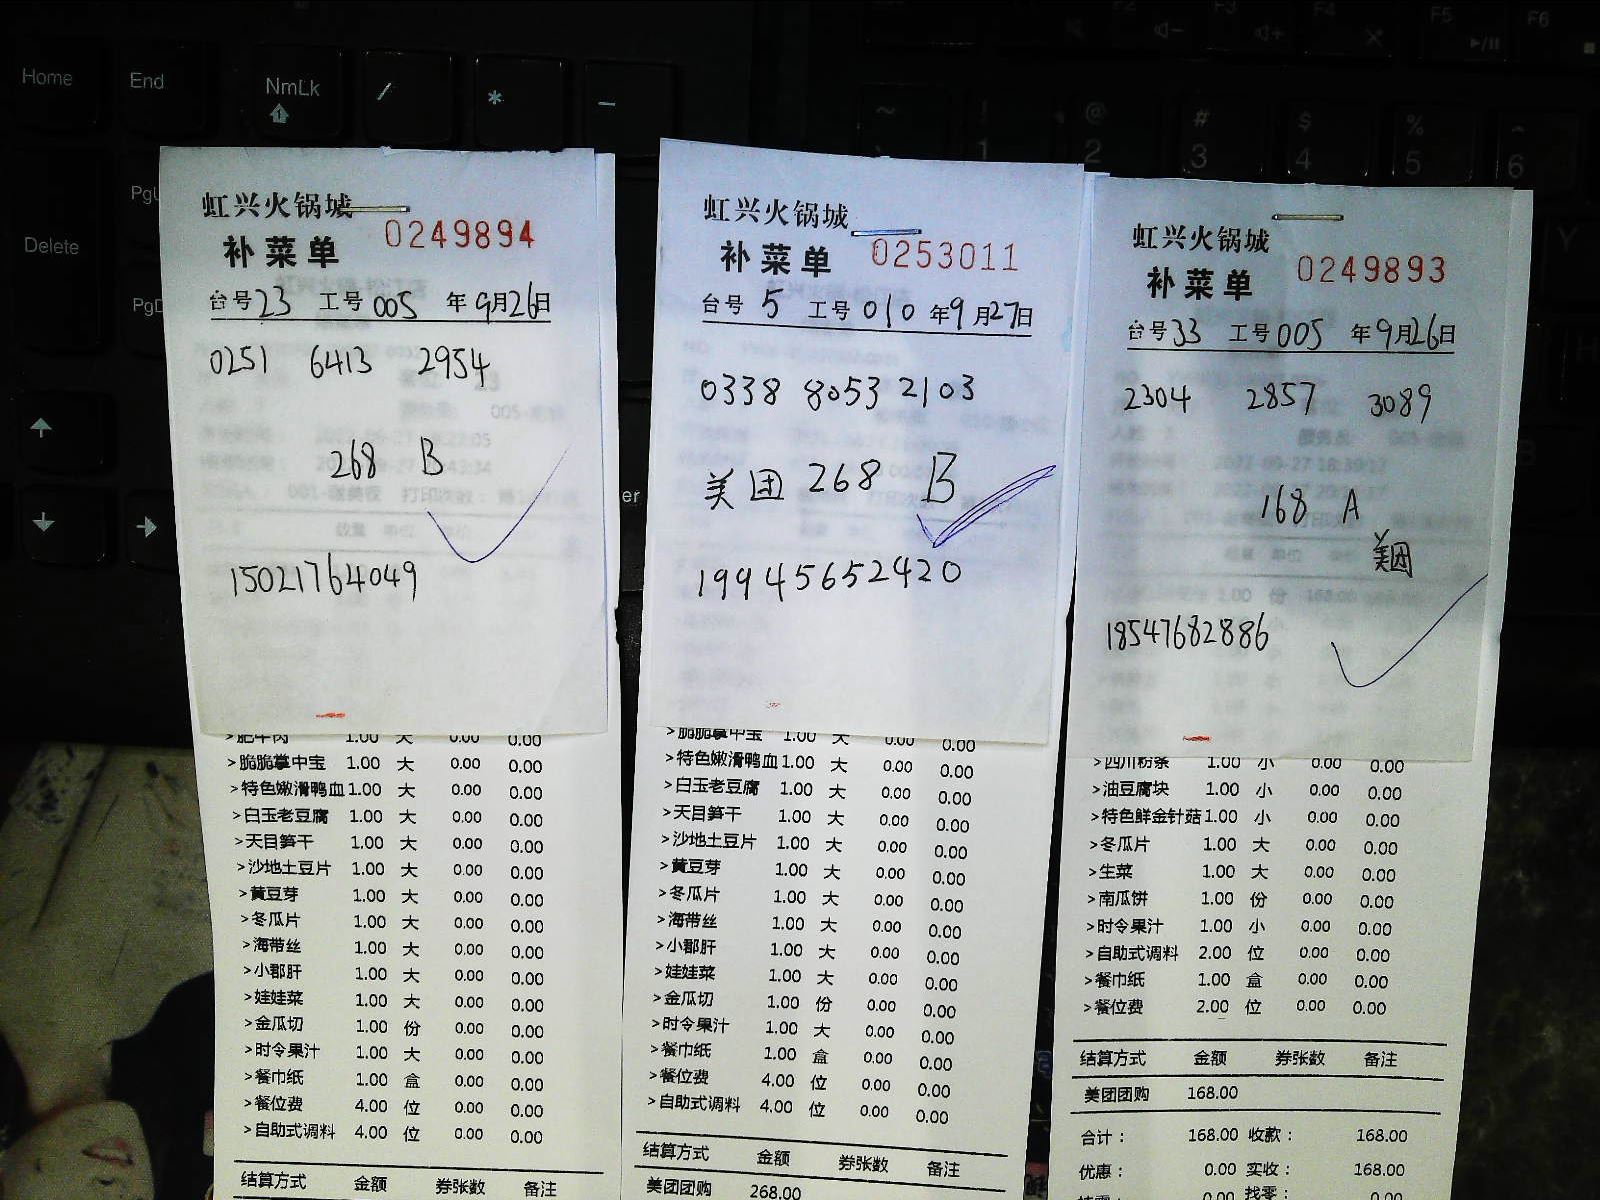 Home
End
NmLk
/
*
-
Delete
虹兴火锅城
补菜单 0249894
台号23 工号005 年9月26日
0251 6413 2954
268 B
15021764049
>肥牛肉 1.00 大 0.00 0.00
>脆脆掌中宝 1.00 大 0.00 0.00
>特色嫩滑鸭血1.00 大 0.00 0.00
>白玉老豆腐 1.00 大 0.00 0.00
>天目笋干 1.00 大 0.00 0.00
>沙地土豆片 1.00 大 0.00 0.00
>黄豆芽 1.00 大 0.00 0.00
>冬瓜片 1.00 大 0.00 0.00
>海带丝 1.00 大 0.00 0.00
>小郡肝 1.00 大 0.00 0.00
>娃娃菜 1.00 大 0.00 0.00
>金瓜切 1.00 份 0.00 0.00
>时令果汁 1.00 大 0.00 0.00
>餐巾纸 1.00 盒 0.00 0.00
>餐位费 4.00 位 0.00 0.00
>自助式调料 4.00 位 0.00 0.00
结算方式 金额 券张数 备注
虹兴火锅城
补菜单 0253011
台号5 工号010 年9月27日
0338 8053 2103
美团 268 B
19945652420
>脆脆掌中宝 1.00 大 0.00 0.00
>特色嫩滑鸭血1.00 大 0.00 0.00
>白玉老豆腐 1.00 大 0.00 0.00
>天目笋干 1.00 大 0.00 0.00
>沙地土豆片 1.00 大 0.00 0.00
>黄豆芽 1.00 大 0.00 0.00
>冬瓜片 1.00 大 0.00 0.00
>海带丝 1.00 大 0.00 0.00
>小郡肝 1.00 大 0.00 0.00
>娃娃菜 1.00 大 0.00 0.00
>金瓜切 1.00 份 0.00 0.00
>时令果汁 1.00 大 0.00 0.00
>餐巾纸 1.00 盒 0.00 0.00
>餐位费 4.00 位 0.00 0.00
>自助式调料 4.00 位 0.00 0.00
结算方式 金额 券张数 备注
美团团购 268.00
虹兴火锅城
补菜单 0249893
台号33 工号005 年9月26日
2304 2857 3089
168 A
美团
18547682886
>四川粉条 1.00 小 0.00 0.00
>油豆腐块 1.00 小 0.00 0.00
>特色鲜金针菇1.00 小 0.00 0.00
>冬瓜片 1.00 大 0.00 0.00
>生菜 1.00 大 0.00 0.00
>南瓜饼 1.00 份 0.00 0.00
>时令果汁 1.00 小 0.00 0.00
>自助式调料 2.00 位 0.00 0.00
>餐巾纸 1.00 盒 0.00 0.00
>餐位费 2.00 位 0.00 0.00
结算方式 金额 券张数 备注
美团团购 168.00
合计： 168.00 收款： 168.00
优惠： 0.00 实收： 168.00